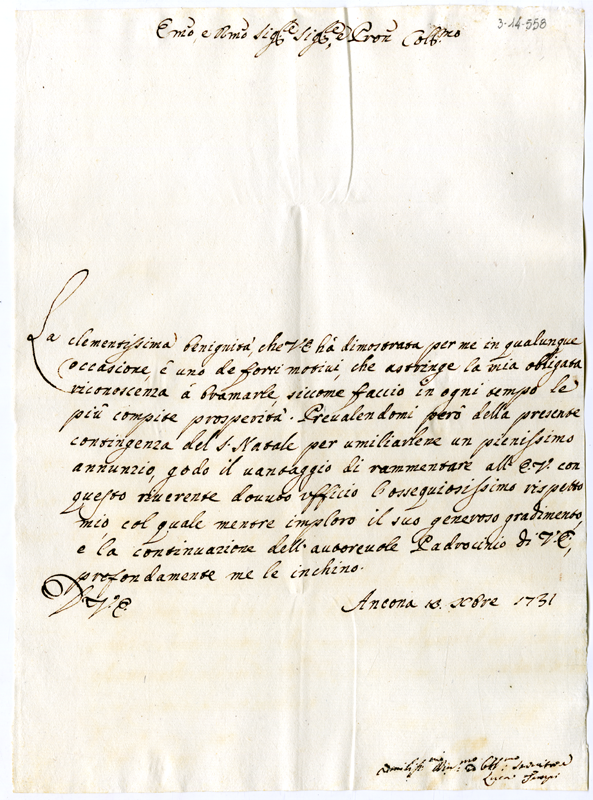 3-14-558
Emo, e Rmo Sigre Sigre, e Pron Collmo
La clementissima benignità, che V.E. hà dimostrata per me in qualunque
occasione, è uno de forti motivi, che astringe la mia obligata
riconoscenza à bramarle, siccome faccio in ogni tempo le
più compite prosperità. Prevalendomi però della presente
contingenza del S. Natale per umiliarlene un pienissimo
annunzio, godo il vantaggio di rammentare all'E.V. con
questo riverente dovuto ufficio l'ossequiosissimo rispetto
mio col quale mentre imploro il suo generoso gradimento,
e la continuazione dell'autorevole Padrocinio di V.E,
profondamente me le inchino.
D V.E. Ancona 18. Xbre 1731
Luca